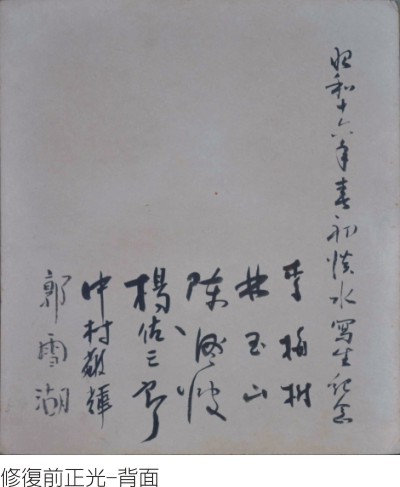 昭和十六年春初淡水寫生記念
李梅樹
林玉山
陳澄波
楊佐三郎
中村敬輝
郭雪湖
修復前正光–背面